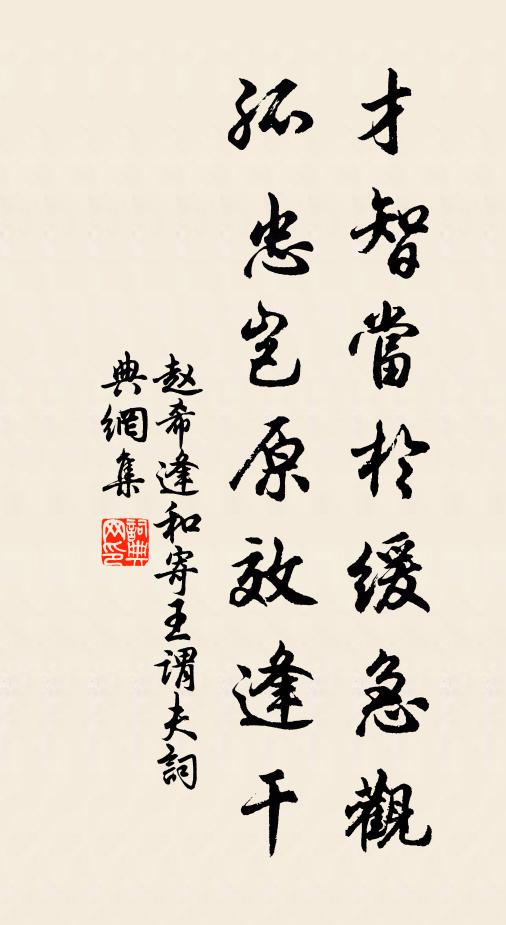 才智當於緩急觀
孤忠岂原效逢干
赵希逢和寄王谓夫詞
典網集
詞典
网印